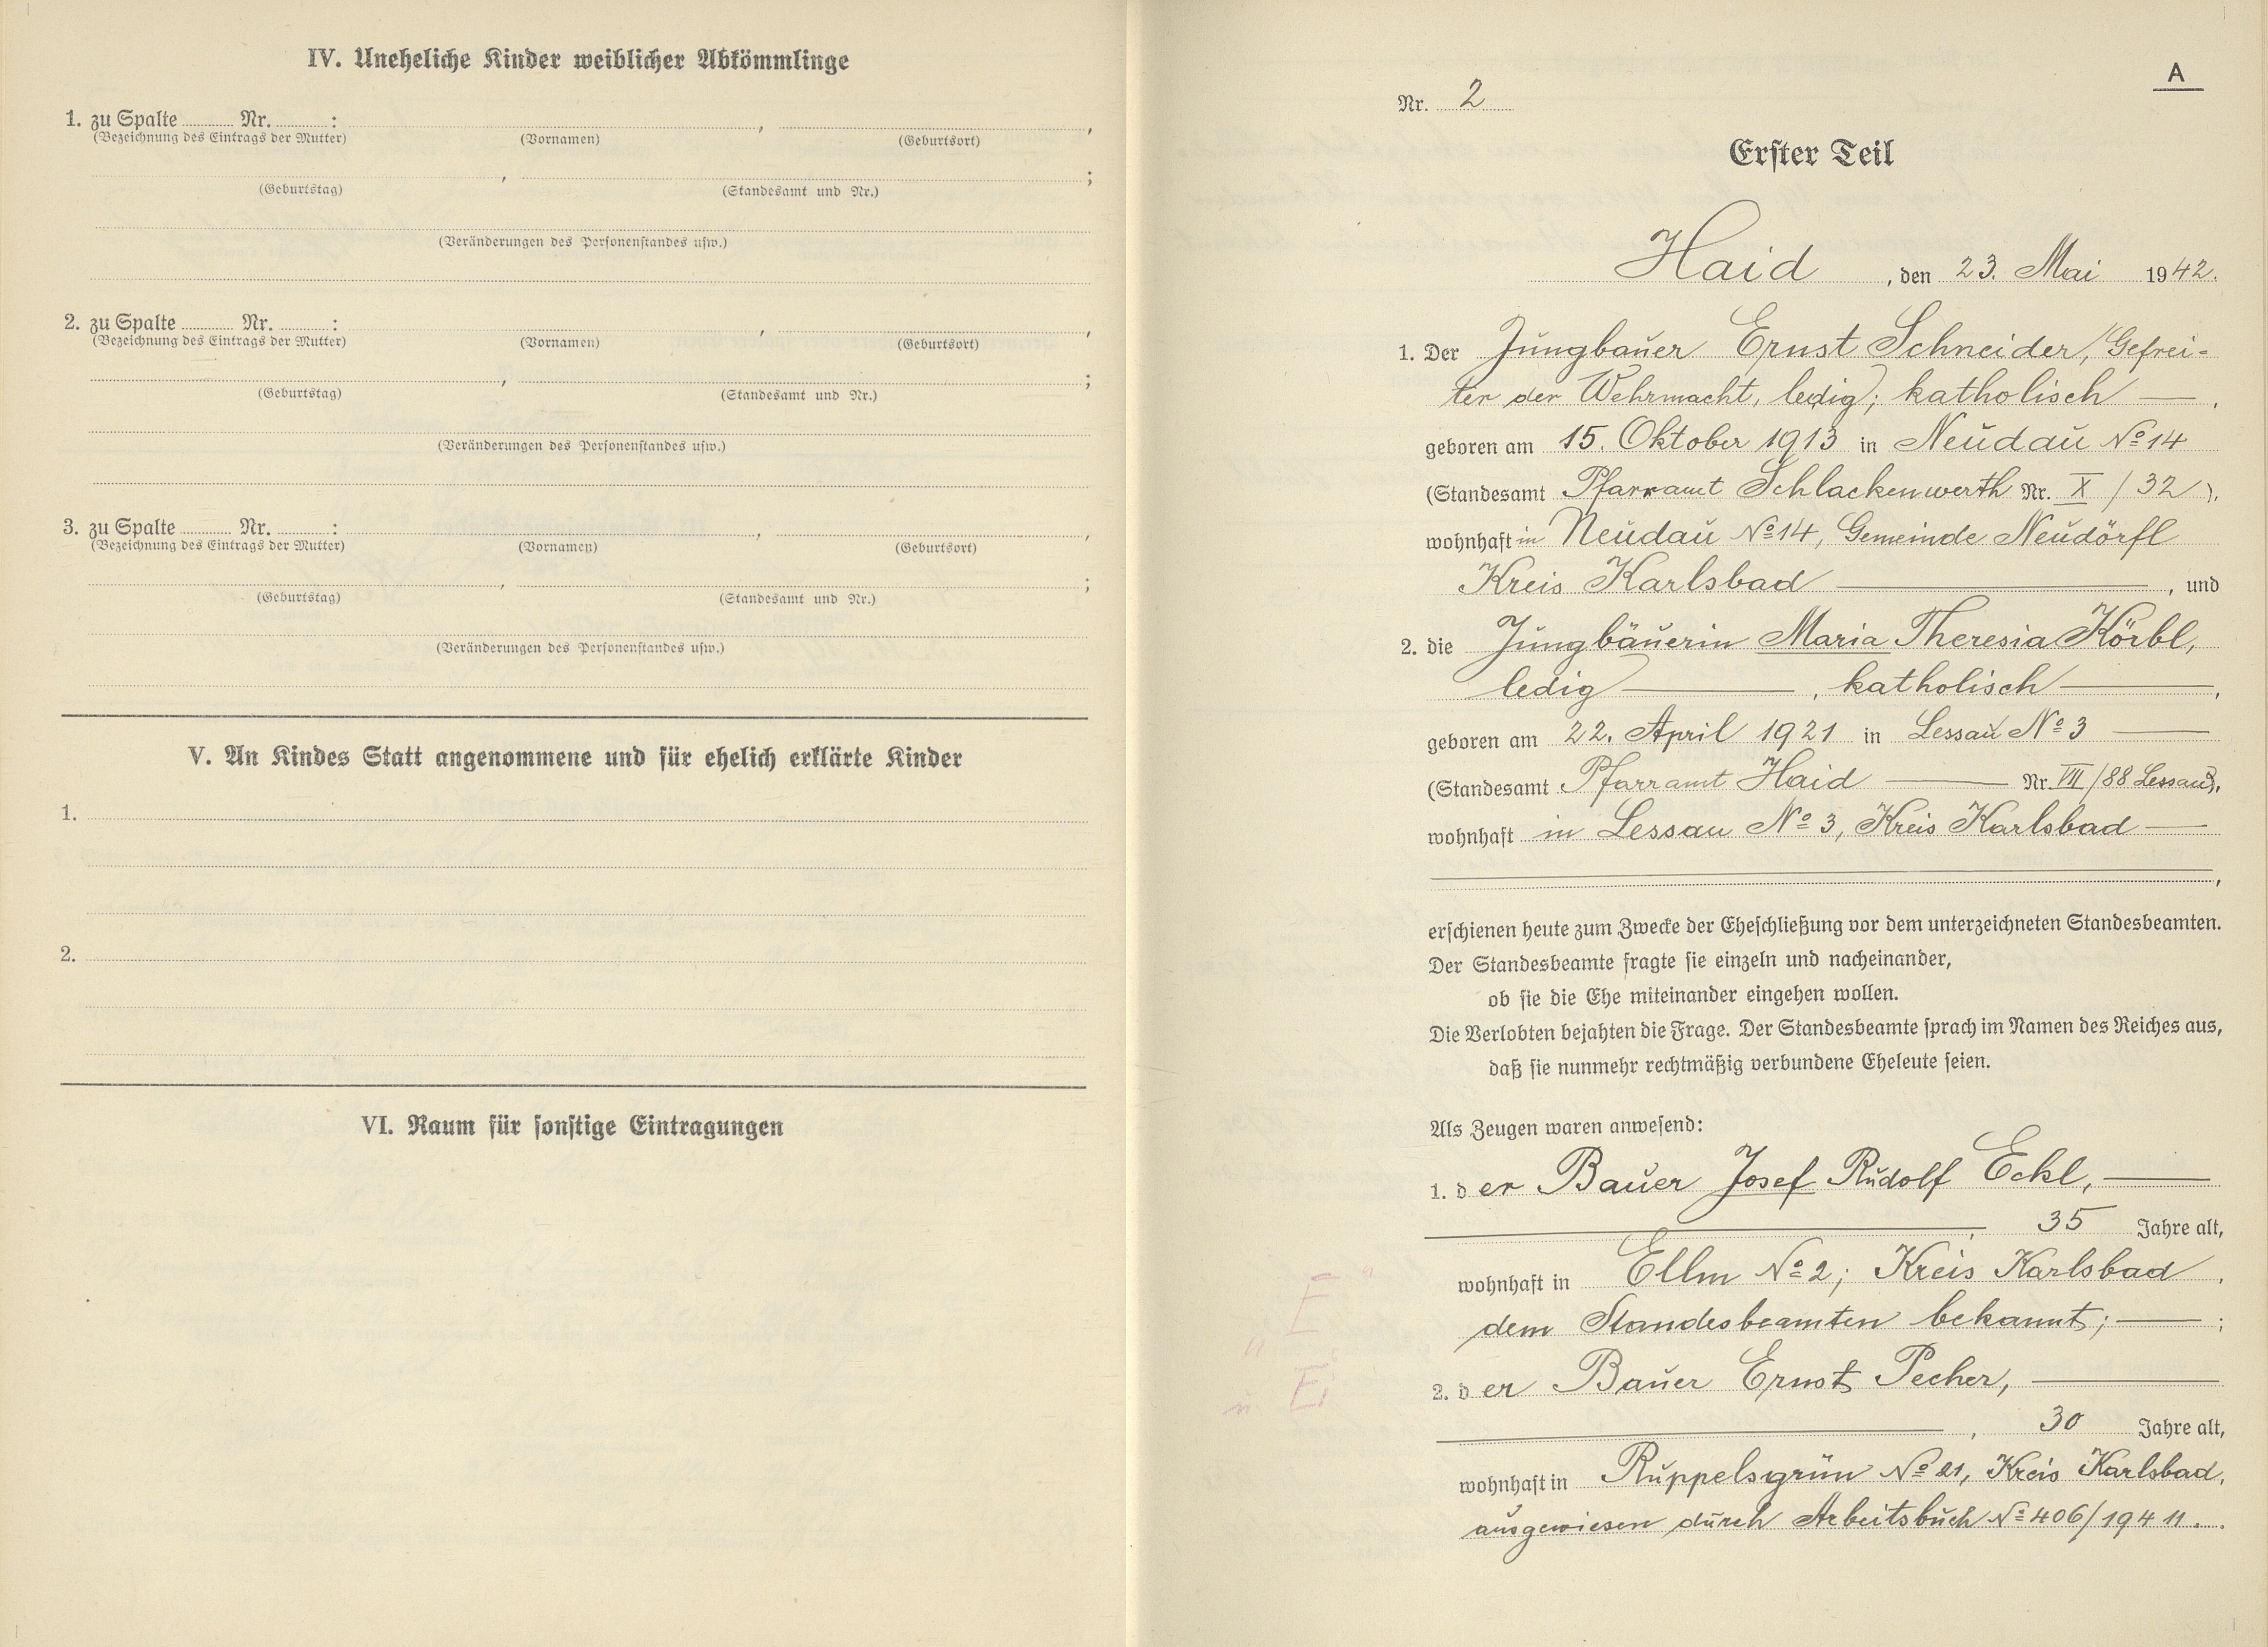 IV. Uneheliche Kinder weiblicher Abkömmlinge
1. zu Spalte Nr. : , ,
(Bezeichnung des Eintrags der Mutter) (Vornamen) (Geburtsort)
, ;
(Geburtstag) (Standesamt und Nr.)
(Veränderungen des Personenstandes usw.)
2. zu Spalte Nr. : , ,
(Bezeichnung des Eintrags der Mutter) (Vornamen) (Geburtsort)
, ;
(Geburtstag) (Standesamt und Nr.)
(Veränderungen des Personenstandes usw.)
3. zu Spalte Nr. : , ,
(Bezeichnung des Eintrags der Mutter) (Vornamen) (Geburtsort)
, ;
(Geburtstag) (Standesamt und Nr.)
(Veränderungen des Personenstandes usw.)
V. An Kindes Statt angenommene und für ehelich erklärte Kinder
1.
2.
VI. Raum für sonstige Eintragungen
A
Nr. 2
Erster Teil
Haid, den 23. Mai 1942.
1. Der Jungbauer Ernst Schneider, (Gefrei-
ter der Wehrmacht, ledig); katholisch — ,
geboren am 15. Oktober 1913 in Neudau No 14
(Standesamt Pfarramt Schlackenwerth Nr. X / 32 ),
wohnhaft in Neudau No 14, Gemeinde Neudörfl
Kreis Karlsbad — , und
2. die Jungbäuerin Maria Theresia Körbl,
ledig — , katholisch — ,
geboren am 22. April 1921 in Lessau No 3 —
(Standesamt Pfarramt Haid — Nr. VII / 88 Lessau),
wohnhaft in Lessau No 3, Kreis Karlsbad —
,
erschienen heute zum Zwecke der Eheschließung vor dem unterzeichneten Standesbeamten.
Der Standesbeamte fragte sie einzeln und nacheinander,
ob sie die Ehe miteinander eingehen wollen.
Die Verlobten bejahten die Frage. Der Standesbeamte sprach im Namen des Reiches aus,
daß sie nunmehr rechtmäßig verbundene Eheleute seien.
Als Zeugen waren anwesend:
1. der Bauer Josef Rudolf Eckl, —
— , 35 Jahre alt,
wohnhaft in Ellm No 2; Kreis Karlsbad ,
dem Standesbeamten bekannt; — ;
2. der Bauer Ernst Pecher, —
— , 30 Jahre alt,
wohnhaft in Ruppelsgrün No 21, Kreis Karlsbad,
ausgewiesen durch Arbeitsbuch No 406/194 11.